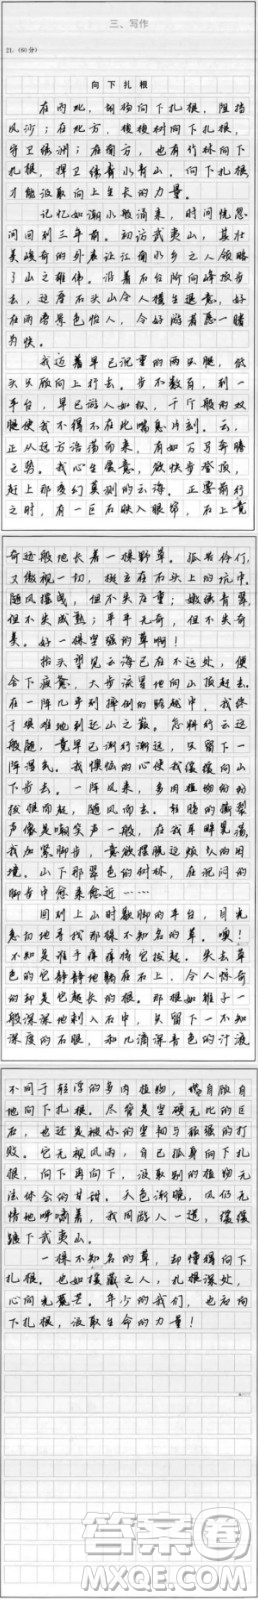 三、写作
21. (60分)
向下扎根
在西北，胡杨向下扎根，阻挡
风沙；在北方，
向下扎根，
守卫绿洲；在南方，也有竹林向下
扎根，捍卫绿水青山。向下扎根，
才能汲取向上生长的力量。
记忆如潮水般涌来，时间恍惚
间回到三年前。初访武夷山，其壮
美峻奇的外表让江南水乡之人领略
了山之雄伟。沿着石台阶向峰顶步
去，这座石头山令人横生退意，好
在雨雾景色怡人，令好游者愿一睹
为快。
我迈着早已沉重的两头腿，低
头只顾向上行去。步不数百，到一
平台，早已游人如织，千斤般的双
腿使我不得不在此喘息片刻。云，
正从远方浩荡而来，有如万马奔腾
之势。我心生爱意，欲快步登顶，
赶上那变幻莫测的云海。正要前行
之时，有一巨石映入眼帘，石上竟
奇迹般地长着一棵野草。孤苦伶仃，
又傲视一切，挺立在石头上的坑中。
随风摇曳，但不失庄重；嫩绿青翠，
但不失成熟；平平无奇，但不失奇
美。好一棵坚强的草啊！
抬头望见云海已在不远处，便
舍下疲惫，大步流星地向山顶赶去。
在一阵几乎到摔倒的
中，我终
于艰难地到达山之巅。怎料行云过
般随，竟早已渐行渐远，只留下一
阵湿气。我懊恼的心使我缓缓向山
下步去。一阵风来，多肉植物纷纷
拔根而起，随风而去。轻微的撕裂
声像是嘲笑声一般，在我耳畔萦荡，
我加紧脚步，意欲摆脱这烦人的困
境。山下那翠色的树林，在沉闷的
脚步中愈来愈近……
回到上山时歇脚的平台，目光
急切地寻找那棵不知名的草。噢！
不知是谁手痒痒将它拔起。失去草
色的它静静地躺在石上，令人惊奇
的却是它超长的根。那根如锥子一
般深深地刺入石中，只留下一不知
深度的石眼，和几滴深青色的汁液
不同于轻浮的多肉植物，
自顾自
地向下扎根。尽管是坚硬无比的巨
石，也还是被你的坚韧与顽强的打
败。它无视风雨，自己孤身向下扎
根，向下再向下，汲取别的植物无
法体会的甘甜。天色渐晚，风仍无
情地呼啸着，我同游人一道，缓缓
踱下武夷山。
一棵不知名的草，却懂得向下
扎根。也如
之人，扎根深处，
心向光芒。年少的我们，也应向
下扎根，汲取生命的力量！
答案圈
MXQE.COM